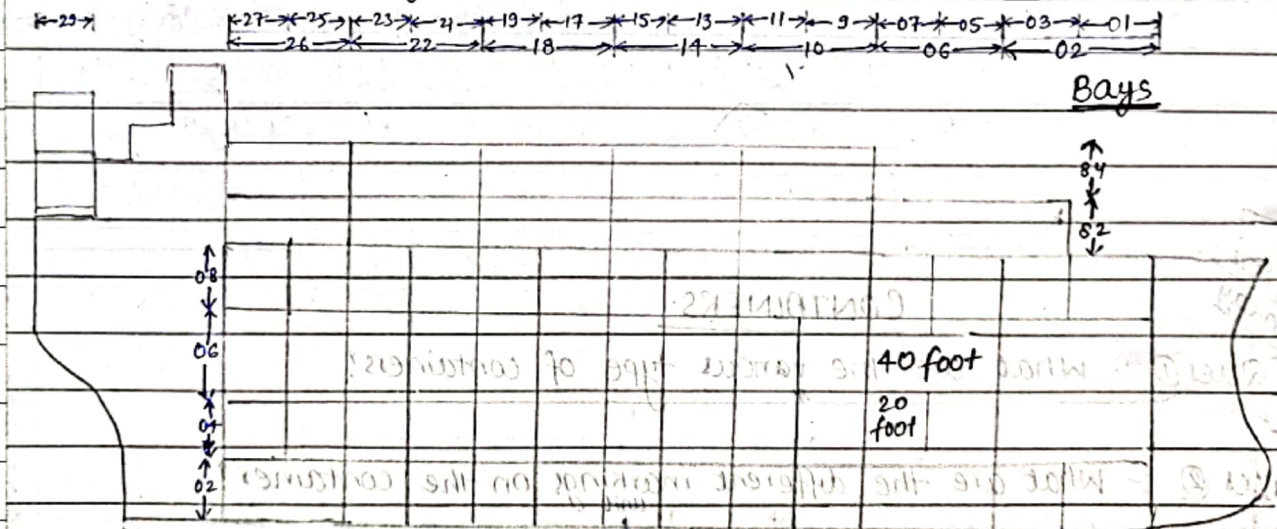 29 27 25 23 21 19 17 15 13 11 9 07 05 03 01
26 22 18 14 10 06 02
Bays
84
82
08
06
04
02
40 foot
20
foot